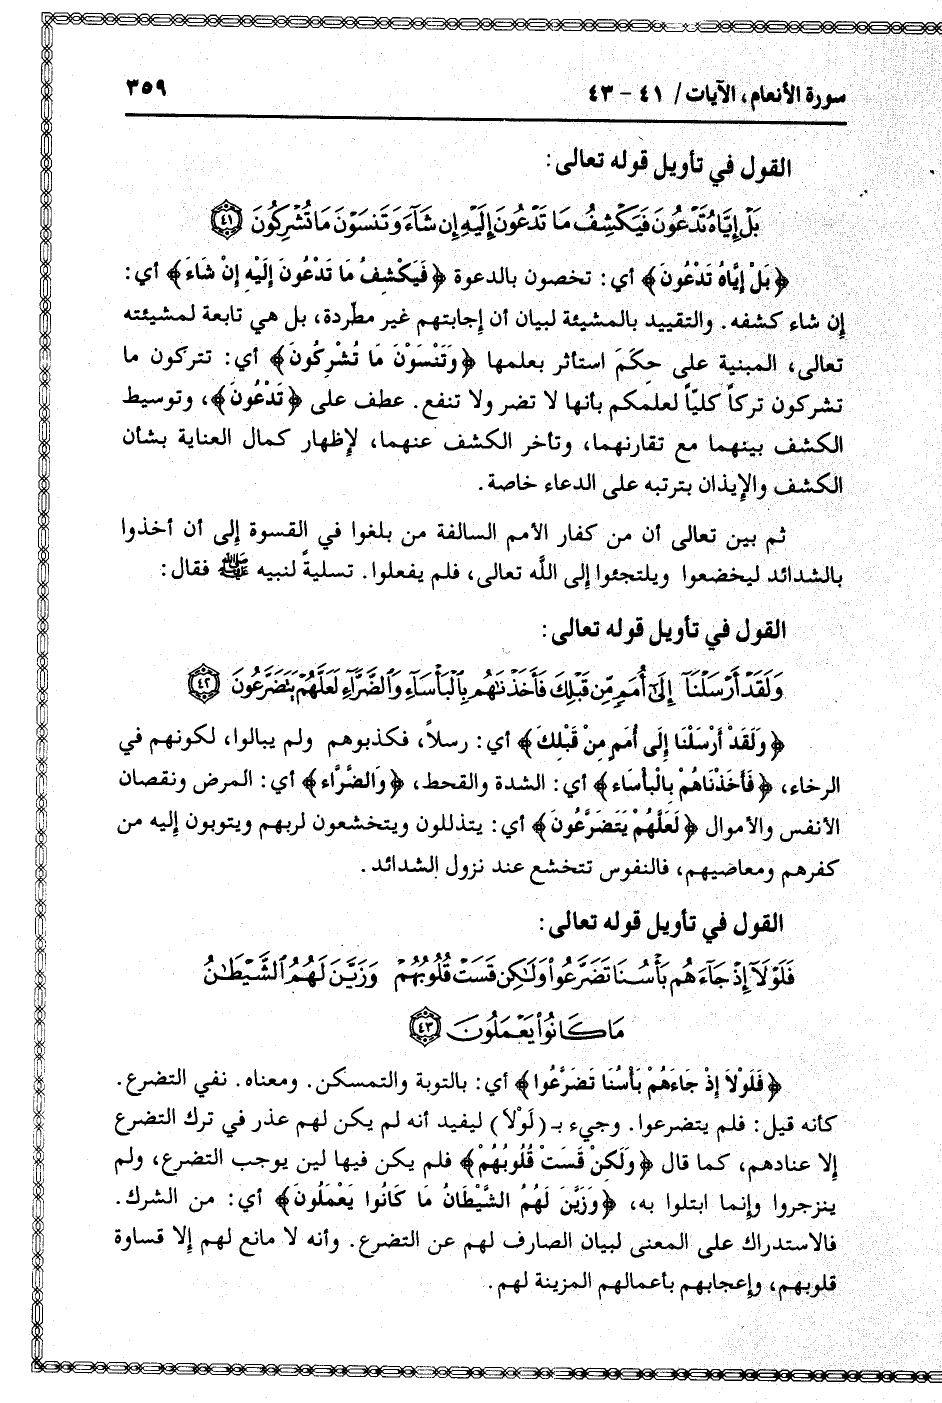 سورة الأنعام، الآيات/ ٤١ - ٤٣
٣٥٩
القول في تأويل قوله تعالى:
بَلْ إِيَّاهُ تَدْعُونَ فَيَكْشِفُ مَا تَدْعُونَ إِلَيْهِ إِن شَآءَ وَتَنسَوْنَ مَا تُشْرِكُونَ ٤١
﴿بَلْ إِيَّاهُ تَدْعُونَ﴾ أي: تخصون بالدعوة ﴿فَيَكْشِفُ مَا تَدْعُونَ إِلَيْهِ إِنْ شَاءَ﴾ أي:
إن شاء كشفه. والتقييد بالمشيئة لبيان أن إجابتهم غير مطّردة، بل هي تابعة لمشيئته
تعالى، المبنية على حِكَمَ استأثر بعلمها ﴿وَتَنْسَوْنَ مَا تُشْرِكُونَ﴾ أي: تتركون ما
تشركون تركاً كليّاً لعلمكم بأنها لا تضر ولا تنفع. عطف على ﴿تَدْعُونَ﴾، وتوسيط
الكشف بينهما مع تقارنهما، وتأخر الكشف عنهما، لإظهار كمال العناية بشأن
الكشف والإيذان بترتبه على الدعاء خاصة.
ثم بين تعالى أن من كفار الأمم السالفة من بلغوا في القسوة إلى أن أخذوا
بالشدائد ليخضعوا ويلتجئوا إلى اللَّه تعالى، فلم يفعلوا. تسليةً لنبيه ﷺ فقال:
القول في تأويل قوله تعالى:
وَلَقَدْ أَرْسَلْنَآ إِلَىٰٓ أُمَمٍ مِّن قَبْلِكَ فَأَخَذْنَٰهُم بِٱلْبَأْسَآءِ وَٱلضَّرَّآءِ لَعَلَّهُمْ يَتَضَرَّعُونَ ٤٢
﴿وَلَقَدْ أَرْسَلْنَا إِلَى أُمَمٍ مِنْ قَبْلِكَ﴾ أي: رسلاً، فكذبوهم ولم يبالوا، لكونهم في
الرخاء، ﴿فَأَخَذْنَاهُمْ بِالْبأْسَاء﴾ أي: الشدة والقحط، ﴿وَالضَّرَّاء﴾ أي: المرض ونقصان
الأنفس والأموال ﴿لَعَلَّهُمْ يَتَضَرَّعُونَ﴾ أي: يتذللون ويتخشعون لربهم ويتوبون إليه من
كفرهم ومعاصيهم، فالنفوس تتخشع عند نزول الشدائد.
القول في تأويل قوله تعالى:
فَلَوْلَآ إِذْ جَآءَهُم بَأْسُنَا تَضَرَّعُوا۟ وَلَٰكِن قَسَتْ قُلُوبُهُمْ وَزَيَّنَ لَهُمُ ٱلشَّيْطَٰنُ
مَا كَانُوا۟ يَعْمَلُونَ ٤٣
﴿فَلَوْلاَ إِذْ جَاءَهُمْ بَأْسُنَا تَضَرَّعُوا﴾ أي: بالتوبة والتمسكن. ومعناه. نفي التضرع.
كأنه قيل: فلم يتضرعوا. وجيء بـ (لَوْلاَ) ليفيد أنه لم يكن لهم عذر في ترك التضرع
إلا عنادهم، كما قال ﴿وَلَكِنْ قَسَتْ قُلُوبُهُمْ﴾ فلم يكن فيها لين يوجب التضرع، ولم
ينزجروا وإنما ابتلوا به، ﴿وَزَيَّنَ لَهُمُ الشَّيْطَانُ مَا كَانُوا يَعْمَلُونَ﴾ أي: من الشرك.
فالاستدراك على المعنى لبيان الصارف لهم عن التضرع. وأنه لا مانع لهم إلا قساوة
قلوبهم، وإعجابهم بأعمالهم المزينة لهم.